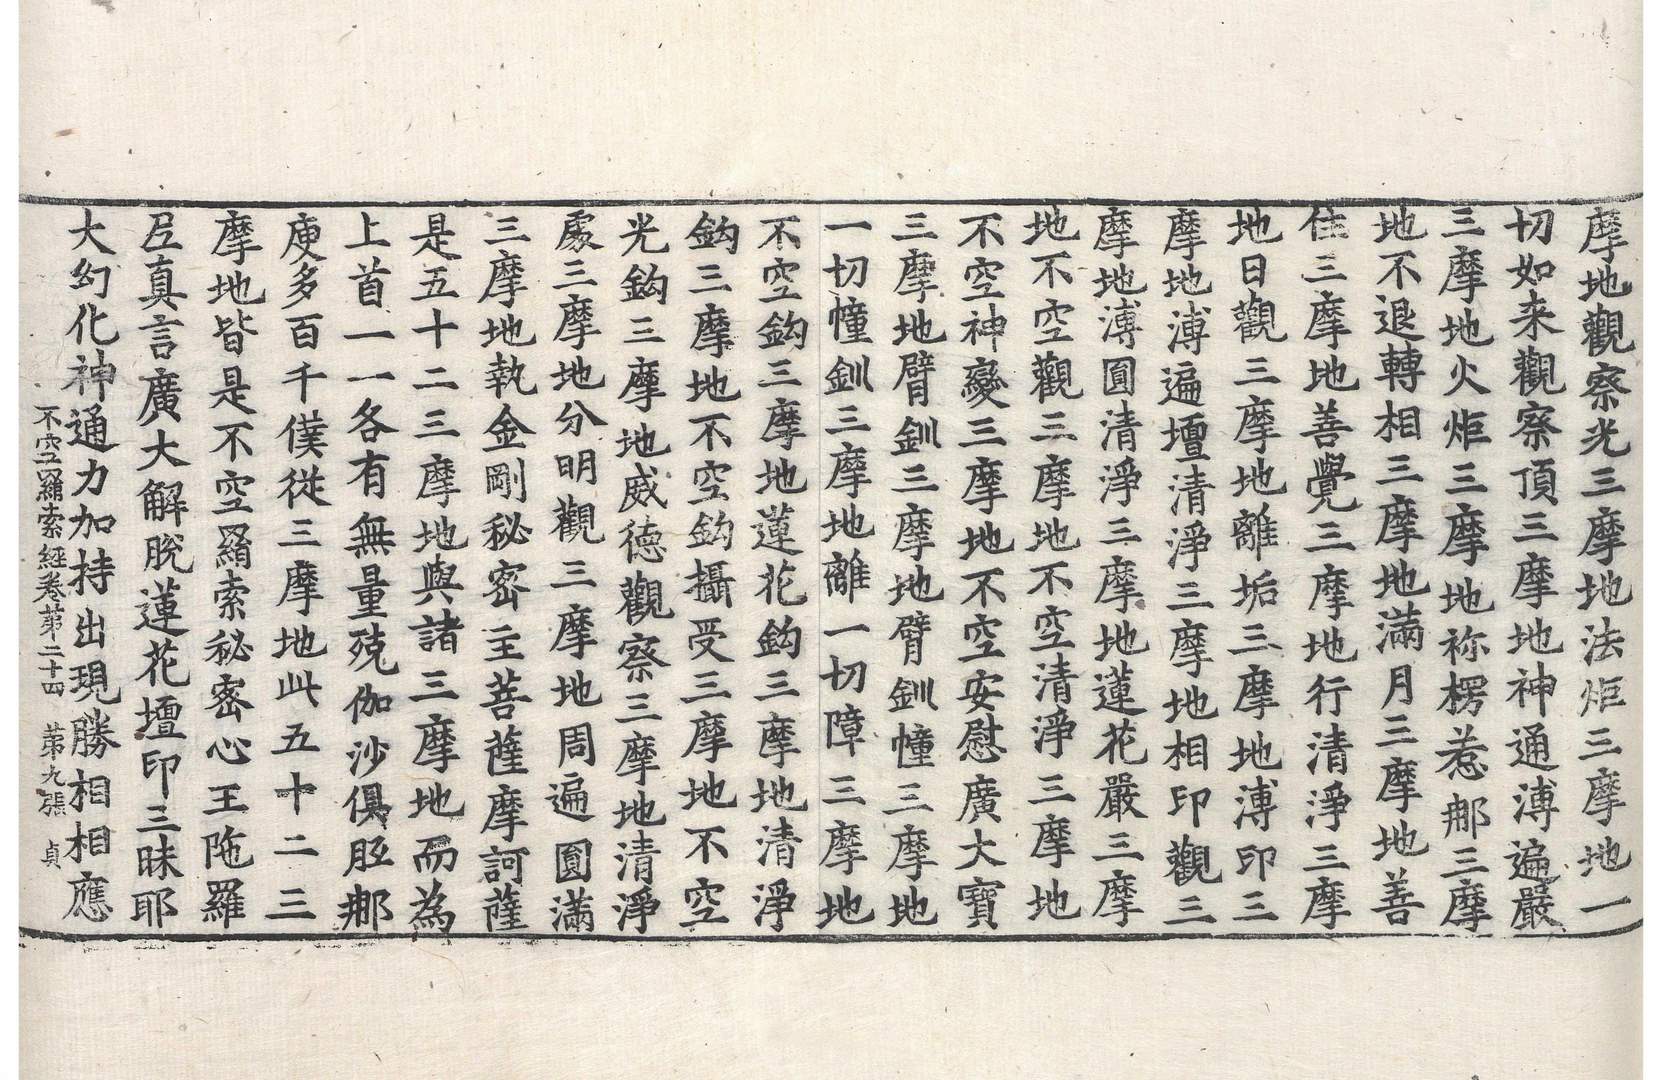 摩地觀察光三摩地法炬三摩地一
切如来觀察頂三摩地神通溥遍嚴
三摩地火炬三摩地祢楞惹郍三摩
地不退轉相三摩地滿月三摩地善
住三摩地善覺三摩地行清淨三摩
地日觀三摩地離垢三摩地溥印三
摩地溥遍壇清淨三摩地相印觀三
摩地溥圓清淨三摩地蓮花嚴三摩
地不空觀三摩地不空清淨三摩地
不空神變三摩地不空安慰廣大寶
三摩地臂釧三摩地臂釧幢三摩地
一切幢釧三摩地離一切障三摩地
不空鈎三摩地蓮花鈎三摩地清淨
鈎三摩地不空鈎攝受三摩地不空
光鈎三摩地威德觀察三摩地清淨
處三摩地分明觀三摩地周遍圓滿
三摩地執金剛秘密主菩薩摩訶薩
是五十二三摩地與諸三摩地而為
上首一一各有無量殑伽沙俱胝郍
庾多百千僕從三摩地此五十二三
摩地皆是不空羂索秘密心王陁羅
尼真言廣大解脫蓮花壇印三昧耶
大幻化神通力加持出現勝相相應
不空羂索經卷第二十四　第九張　貞